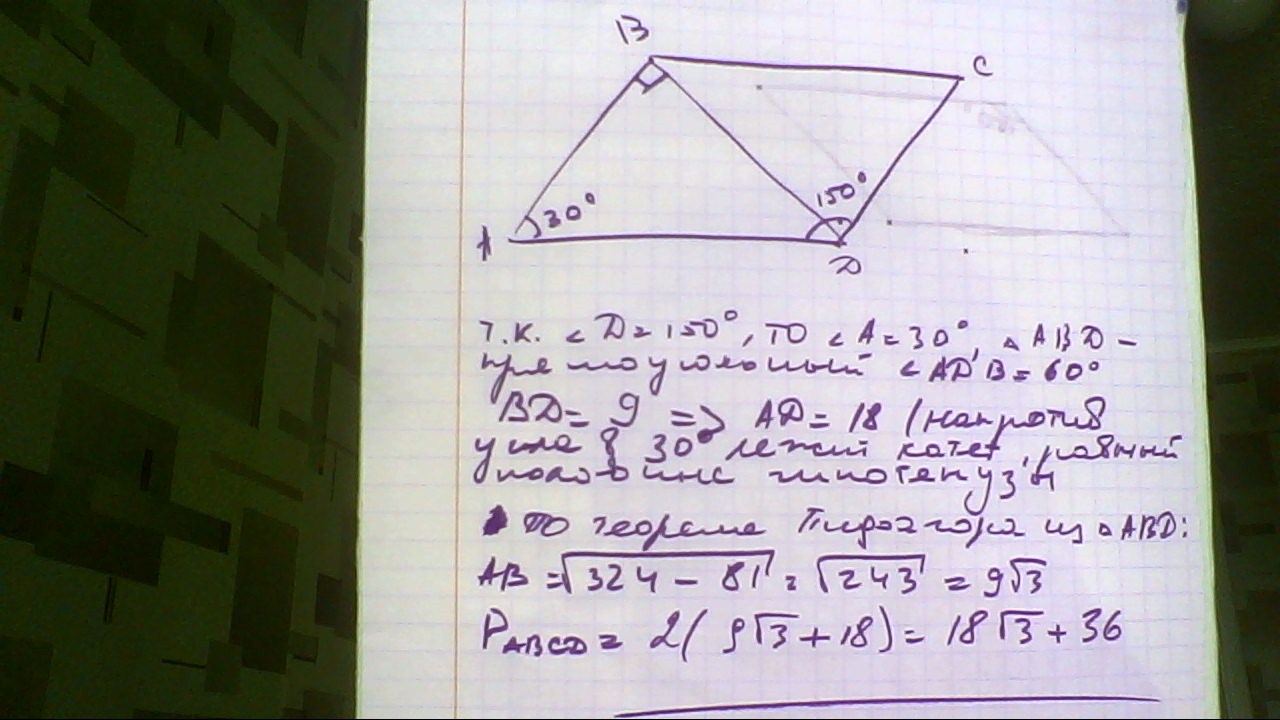 B
C
150°
30°
A
D
т.к. ∠D = 150°, то ∠A = 30°, △ABD –
прямоугольный ∠ADB = 60°
BD = 9 => AD = 18 (напротив
угла в 30° лежит катет, равный
половине гипотенузы
по теореме Пифагора из △ABD:
AB = √324 – 81 = √243 = 9√3
P ABCD = 2( 9√3 + 18) = 18√3 + 36